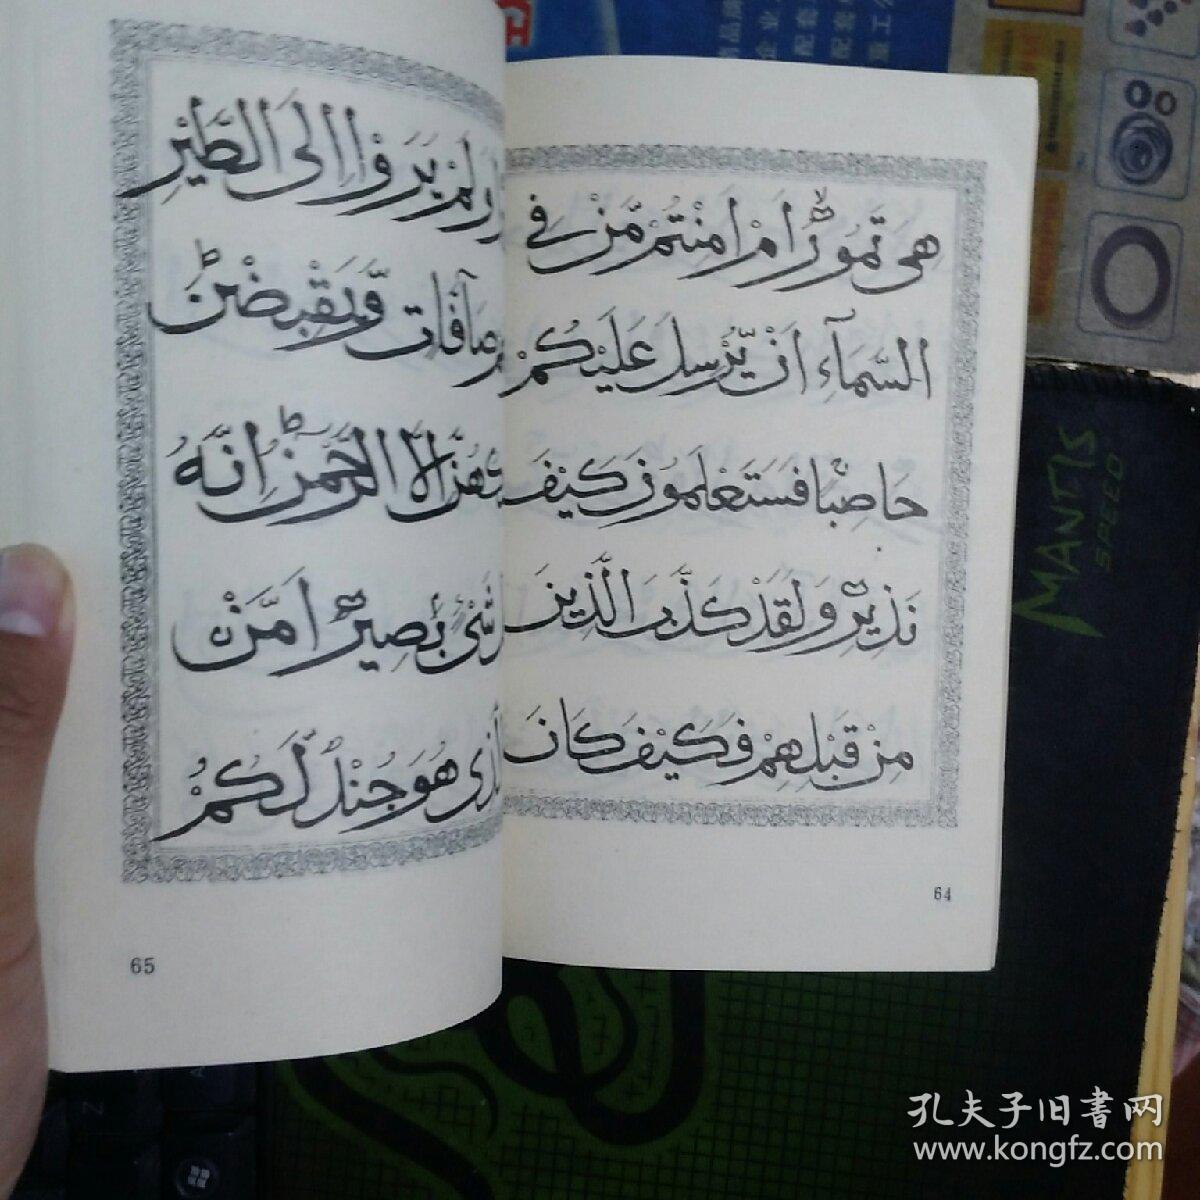 هِيَ تَمُوْرُ اَمْ اَمِنْتُمْ مَّنْ فِى
السَّمَآءِ اَنْ يُّرْسِلَ عَلَيْكُمْ
حَاصِبًا فَسَتَعْلَمُوْنَ كَيْفَ
نَذِيْرِ وَلَقَدْ كَذَّبَ الَّذِيْنَ
مِنْ قَبْلِهِمْ فَكَيْفَ كَانَ
64
لَمْ يَرَوْا اِلَى الطَّيْرِ
صَآفَّاتٍ وَّيَقْبِضْنَ
اِلَّا الرَّحْمٰنُ اِنَّهُ
شَىْءٍ بَصِيْرٌ اَمَّنْ
هُوَ جُنْدٌ لَّكُمْ
65
MANTIS
SPEED
孔夫子旧書网
www.kongfz.com